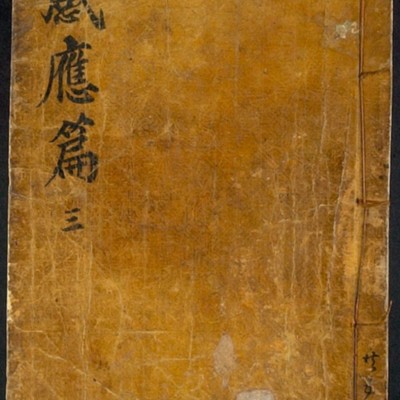 感應篇
三